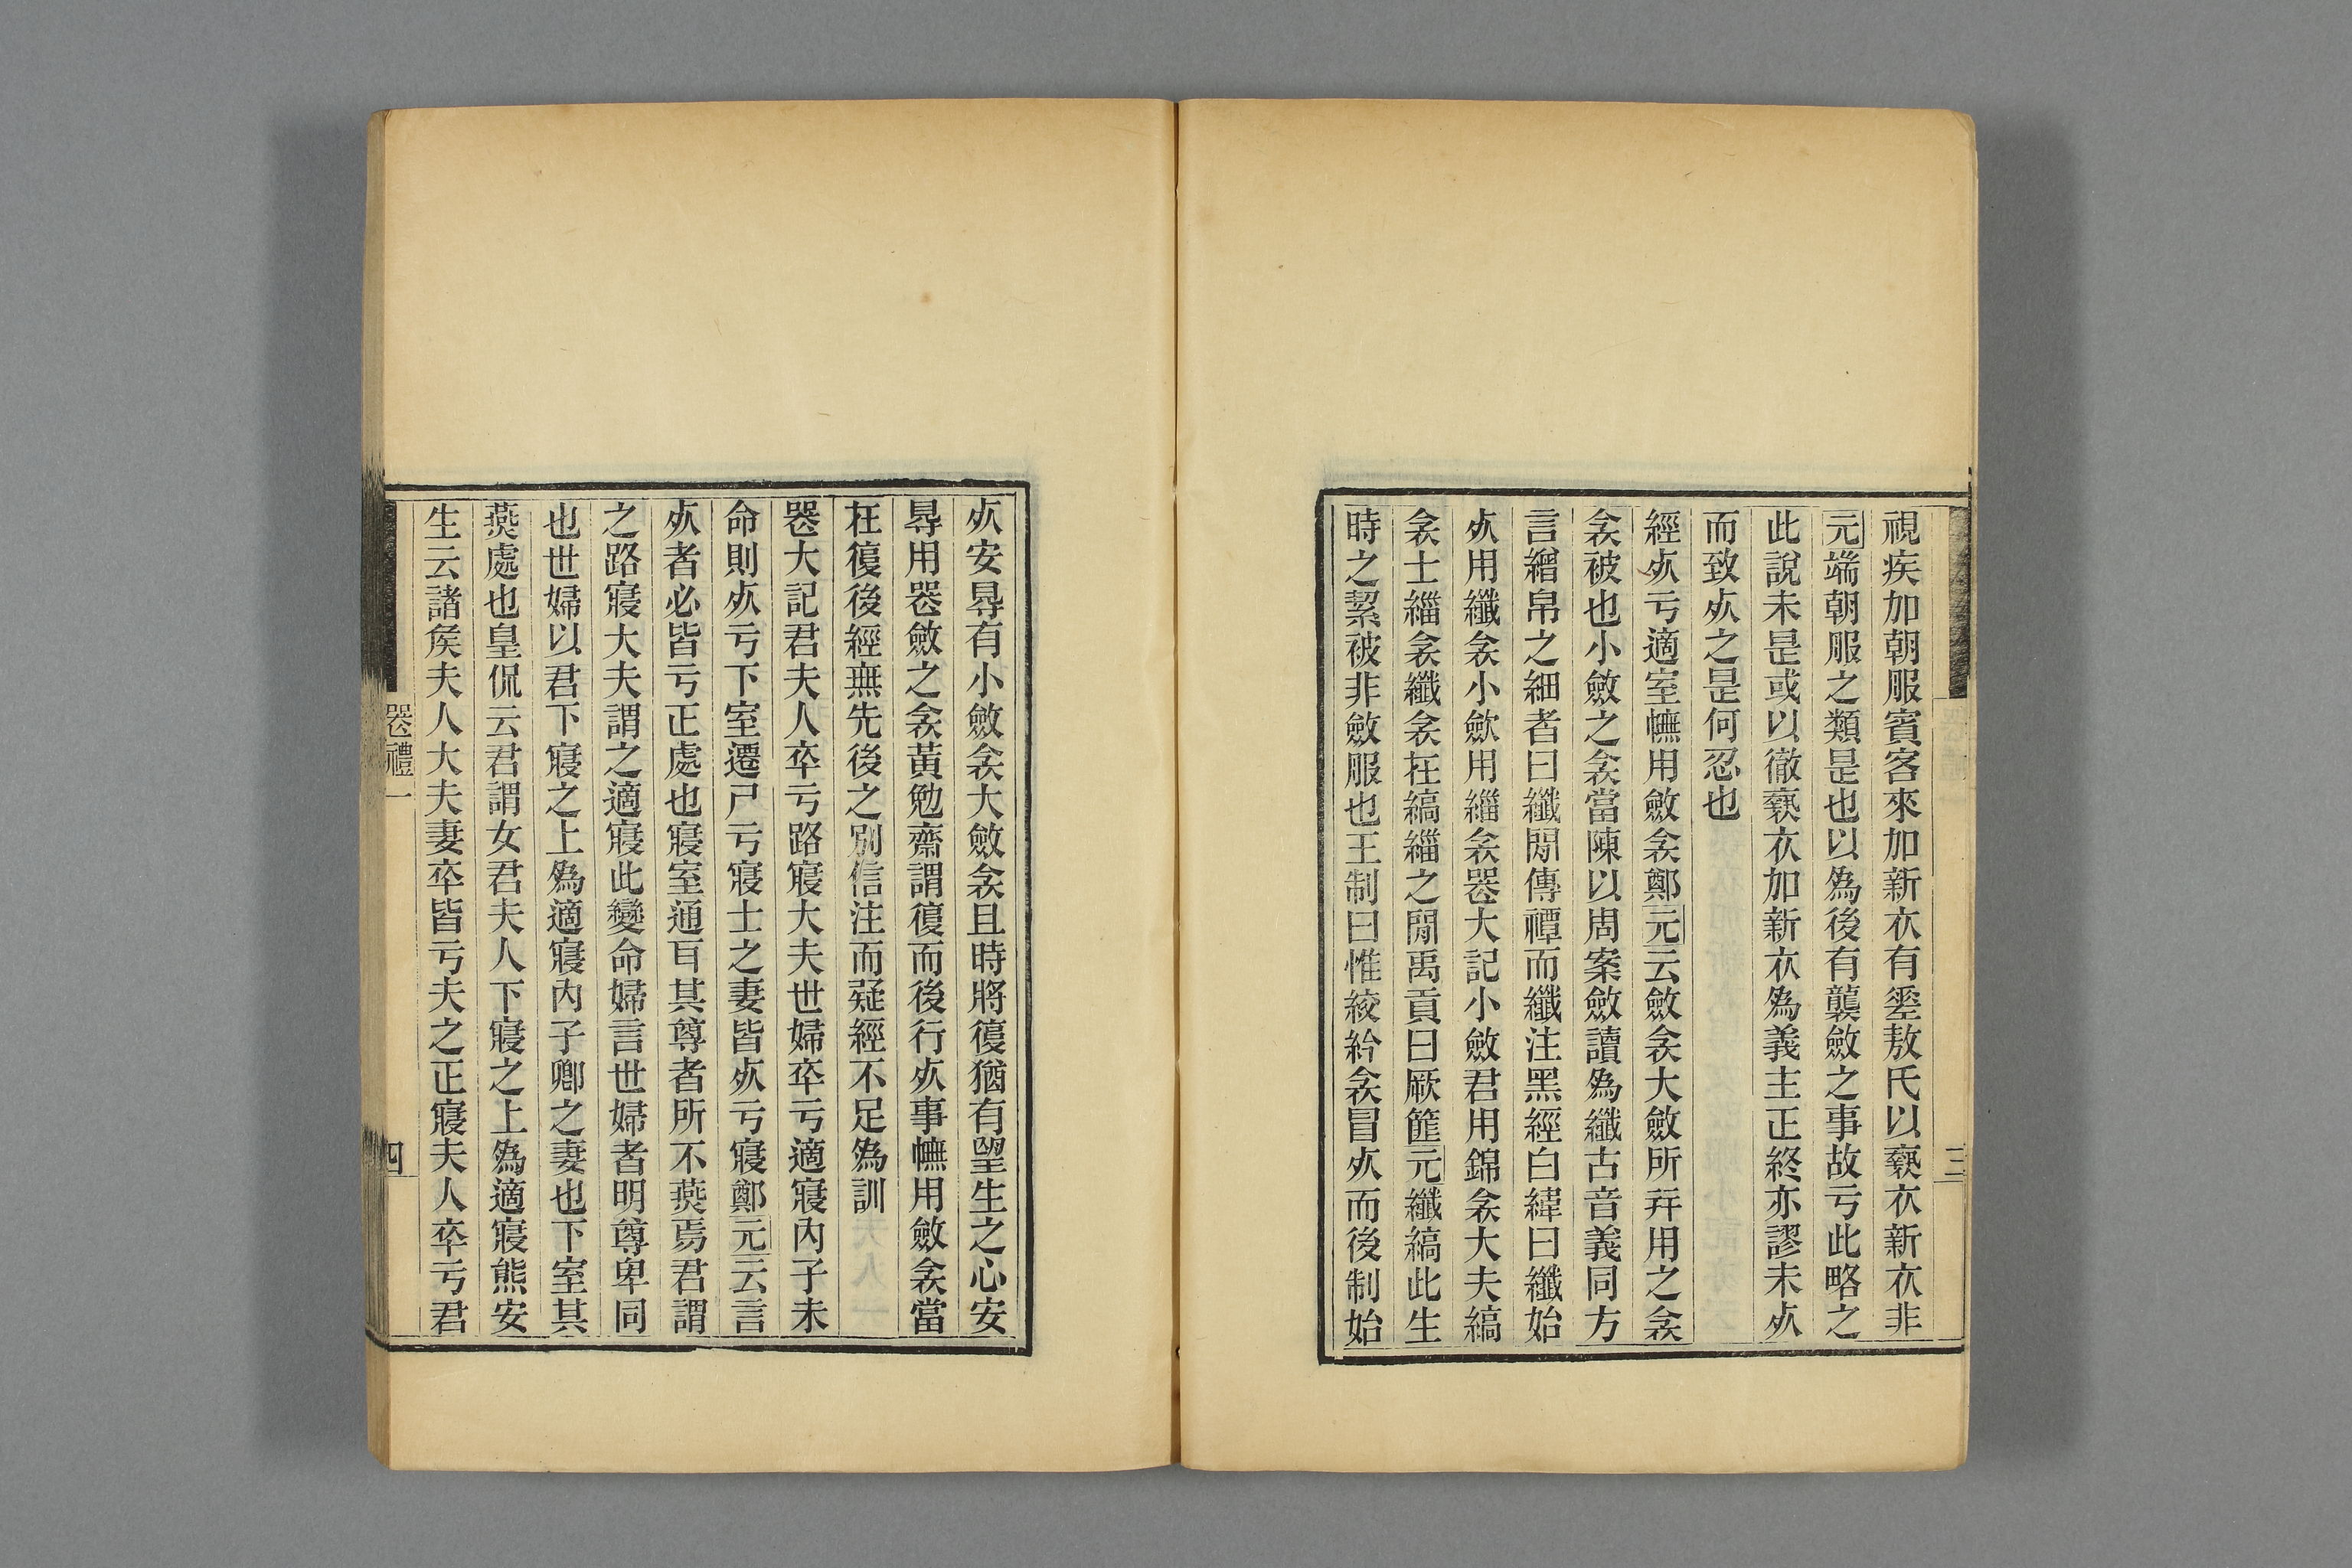 視疾加朝服賓客來加新衣有坙敖氏以褻衣新衣非
元端朝服之類是也以爲後有襲斂之事故亏此略之
此說未是或以徹褻衣加新衣爲義主正終亦謬未𣦸
而致𣦸之是何忍也
經𣦸亏適室幠用斂衾鄭元云斂衾大斂所幷用之衾
衾被也小斂之衾當陳以周案斂讀爲纖古音義同方
言繒帛之細者曰纖閒傳禫而纖注黑經白緯曰纖始
𣦸用纖衾小歛用緇衾器大記小斂君用錦衾大夫縞
衾士緇衾纖衾在縞緇之閒禹貢曰厥篚元纖縞此生
時之絜被非斂服也王制曰惟絞紟衾冒𣦸而後制始
𣦸安㝵有小斂衾大斂衾且時將復猶有望生之心安
㝵用器斂之衾黃勉齋謂復而後行𣦸事幠用斂衾當
在復後經無先後之別信注而疑經不足爲訓
器大記君夫人卒亏路寢大夫世婦卒亏適寢內子未
命則𣦸亏下室遷尸亏寢士之妻皆𣦸亏寢鄭元云言
𣦸者必皆亏正處也寢室通耳其尊者所不燕焉君謂
之路寢大夫謂之適寢此變命婦言世婦者明尊卑同
也世婦以君下寢之上爲適寢內子卿之妻也下室其
燕處也皇侃云君謂女君夫人下寢之上爲適寢熊安
生云諸矦夫人大夫妻卒皆亏夫之正寢夫人卒亏君
器禮一
四
三